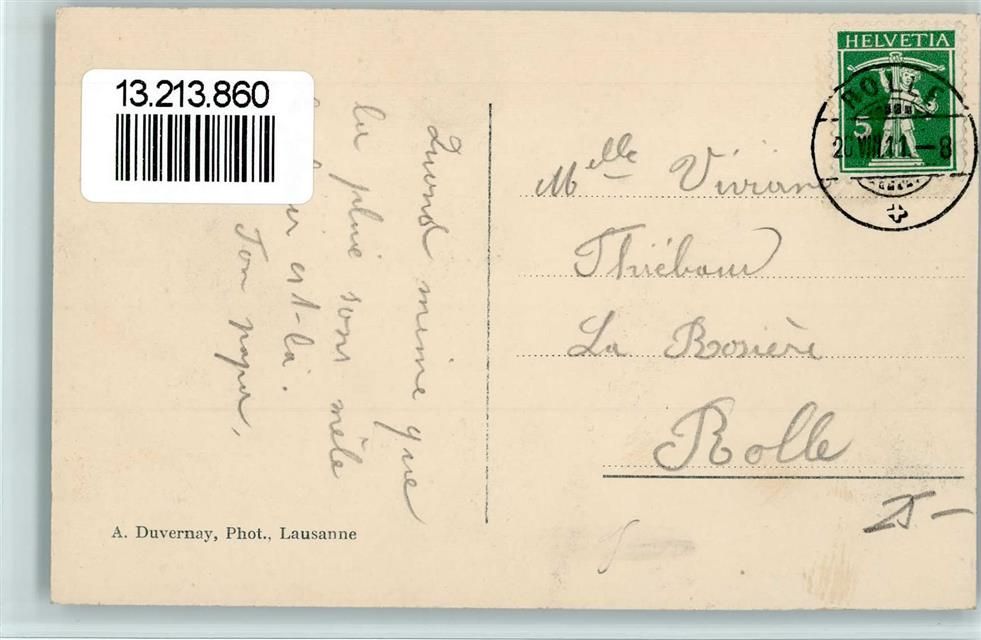 13.213.860
HELVETIA
ROLLE
5
20.VIII.11.-8
Quand même que
la pluie s'en mêle
est-là.
Ton papa,
Melle Vivian
Thiébaud
La Rosière
Rolle
25-
A. Duvernay, Phot., Lausanne